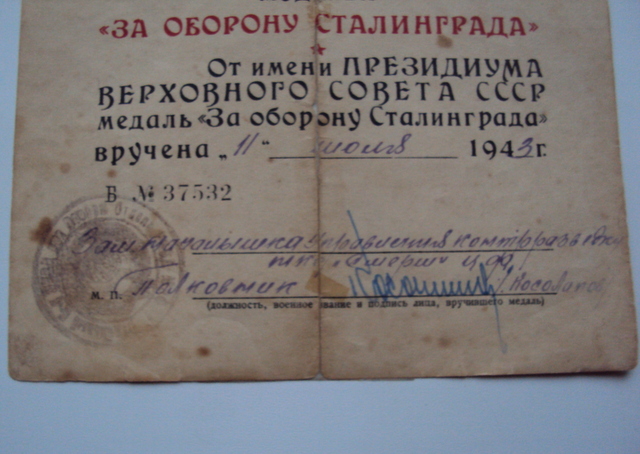 «ЗА ОБОРОНУ СТАЛИНГРАДА»
От имени ПРЕЗИДИУМА
ВЕРХОВНОГО СОВЕТА СССР
медаль «За оборону Сталинграда»
вручена „11“ июля 1943 г.
Б № 37532
Зам. начальника Управления контрразведки
"Смерш"
м. п. Полковник Косолапов
(должность, военное звание и подпись лица, вручившего медаль)